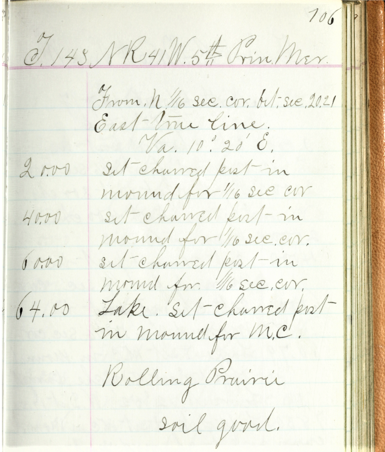 106
T. 143 N R 41 W. 5th Prin Mer.
From N 1/16 sec. cor. bet. sec. 20.21
East true line.
Va. 10° 20' E.
20.00 set charred post in
mound for 1/16 sec cor
40.00 set charred post in
mound for 1/16 sec. cor.
60.00 set charred post in
mound for 1/16 sec. cor.
64.00 Lake. set charred post
in mound for M.C.
Rolling Prairie
soil good.